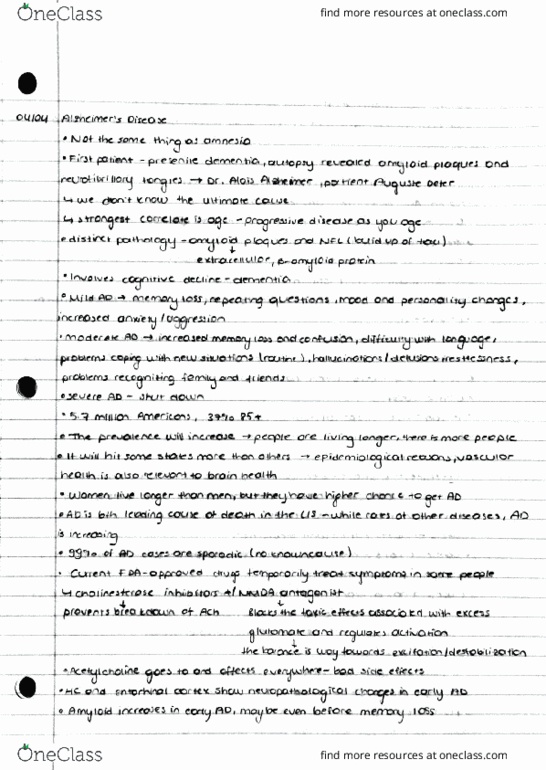 OneClass
find more resources at oneclass.com
04/04 Alzheimer's Disease
• Not the same thing as amnesia
• First patient - presenile dementia, autopsy revealed amyloid plaques and
neurofibrillary tangles → Dr. Alois Alzheimer, patient Auguste Deter
↳ we don't know the ultimate cause
↳ strongest correlate is age - progressive disease as you age
• distinct pathology - amyloid plaques and NFL (build up of tau)
↓
extracellular, B-amyloid protein
• Involves cognitive decline - dementia
• Mild AD → memory loss, repeating questions, mood and personality changes,
increased anxiety/aggression
• moderate AD → increased memory loss and confusion, difficulty with language,
problems coping with new situations (routine), hallucinations/delusions/restlessness,
problems recogniting family and friends
• severe AD - shut down
• 5.7 million Americans, 37% 85+
• The prevalence will increase → people are living longer, there is more people
• It will hit some states more than others → epidemiological reasons, vascular
health is also relevant to brain health
• Women live longer than men, but they have higher chance to get AD
• AD is 6th leading cause of death in the US - while rates of other diseases, AD
is increasing
• 99% of AD cases are sporadic (no known cause)
• Current FDA-approved drugs temporarily treat symptoms in some people
↳ cholinesterase inhibitors +/ NMDA antagonist
↓ ↓
prevents breakdown of ACh Blocks the toxic effects associated with excess
glutamate and regulates activation
↓
the balance is way towards excitation/destabilization
• Acetylcholine goes to and affects everywhere - bad side effects
• HC and entorhinal cortex show neuropathological changes in early AD
• Amyloid increases in early AD, maybe even before memory loss
OneClass
find more resources at oneclass.com